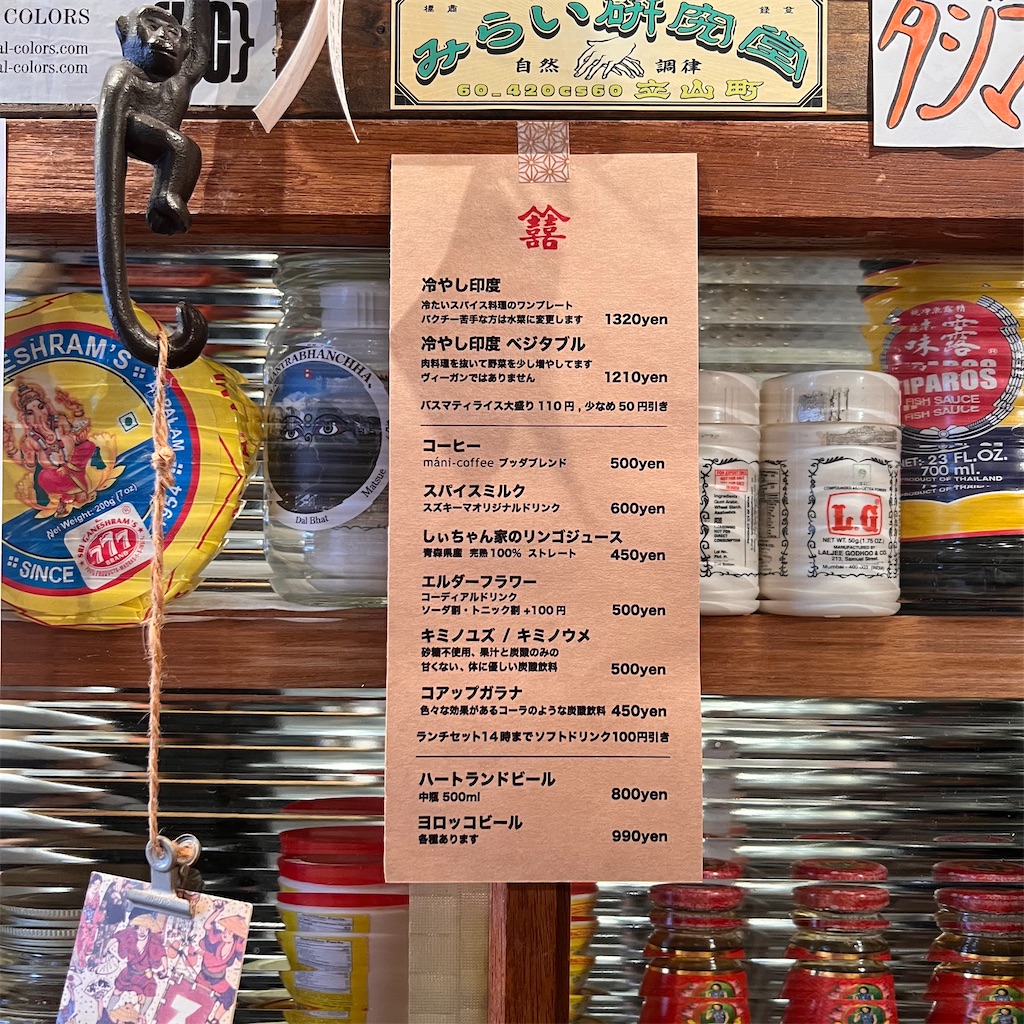 COLORS
al-colors.com
al-colors.com
標商
みらい研究堂
登録
自然 調律
60_420cs60 立山町
タジマ
囍
冷やし印度
冷たいスパイス料理のワンプレート
パクチー苦手な方は水菜に変更します 1320yen
冷やし印度 ベジタブル
肉料理を抜いて野菜を少し増やしてます
ヴィーガンではありません 1210yen
バスマティライス大盛り 110円 , 少なめ 50円引き
コーヒー
máni-coffee ブッダブレンド 500yen
スパイスミルク
スズキーマオリジナルドリンク 600yen
しぃちゃん家のリンゴジュース
青森県産 完熟100% ストレート 450yen
エルダーフラワー
コーディアルドリンク
ソーダ割・トニック割 +100円 500yen
キミノユズ / キミノウメ
砂糖不使用、果汁と炭酸のみの
甘くない、体に優しい炭酸飲料 500yen
コアップガラナ
色々な効果があるコーラのような炭酸飲料 450yen
ランチセット14時までソフトドリンク100円引き
ハートランドビール
中瓶 500ml 800yen
ヨロッコビール
各種あります 990yen
ESHRAM'S
APPALAM
Net Weight: 200g (7oz)
SRI GANESHRAM'S
777
BRAND
SINCE 1937
Matsue
Dal Bhat
味露
TIPAROS
FISH SAUCE
FISH SAUCE
NET: 23 FL.OZ.
700 ml.
PRODUCT OF THAILAND
LG
NET WT. 50g (1.75 OZ)
MANUFACTURED BY
LALJEE GODHOO & CO.